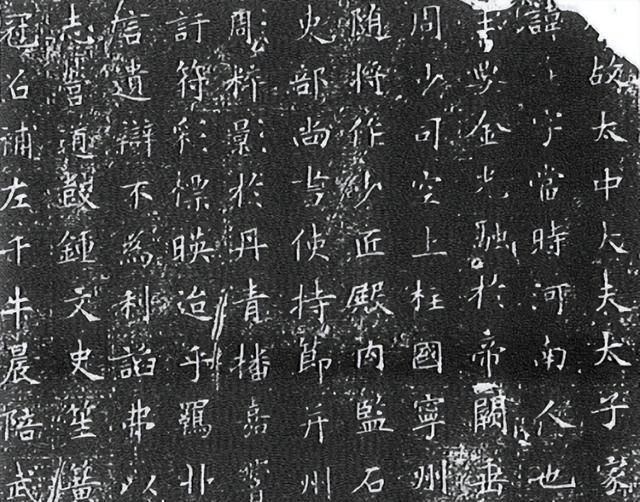 故太中大夫太子家
諱字當時河南人也
金光馳於帝闕垂
周少司空上柱國寧州
随將作少匠殿内監石
吏部尚書使持節并州
周粹影於丹青播嘉
符彩暎迨乎羈丱
信遺辯不為利諂弗以
志道鼓鍾文史笙簧
冠召補左千牛晨陪武